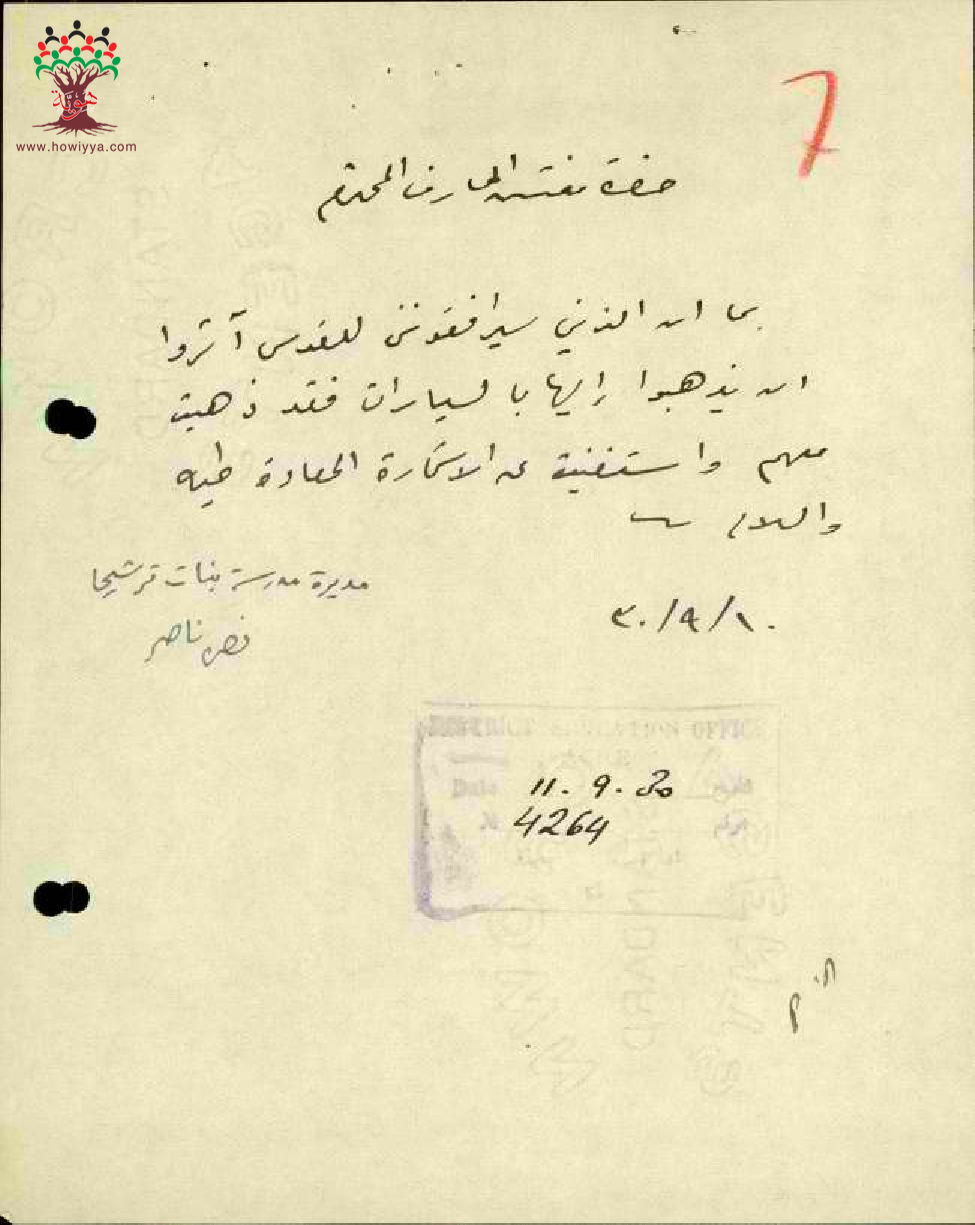 هوية
www.howiyya.com
7
حضرة مفتش المعارف المحترم
بما ان الذين سيرافقونني للقدس آثروا
ان يذهبوا إليها بالسيارات فقد ذهبت
معهم واستغنيت عن الاستمارة المعادة طيه
والسلام
مديرة مدرسة بنات ترشيحا
ناصر
٣٠/٩/١٠
DISTRICT EDUCATION OFFICE
Date 11. 9. 30
4264